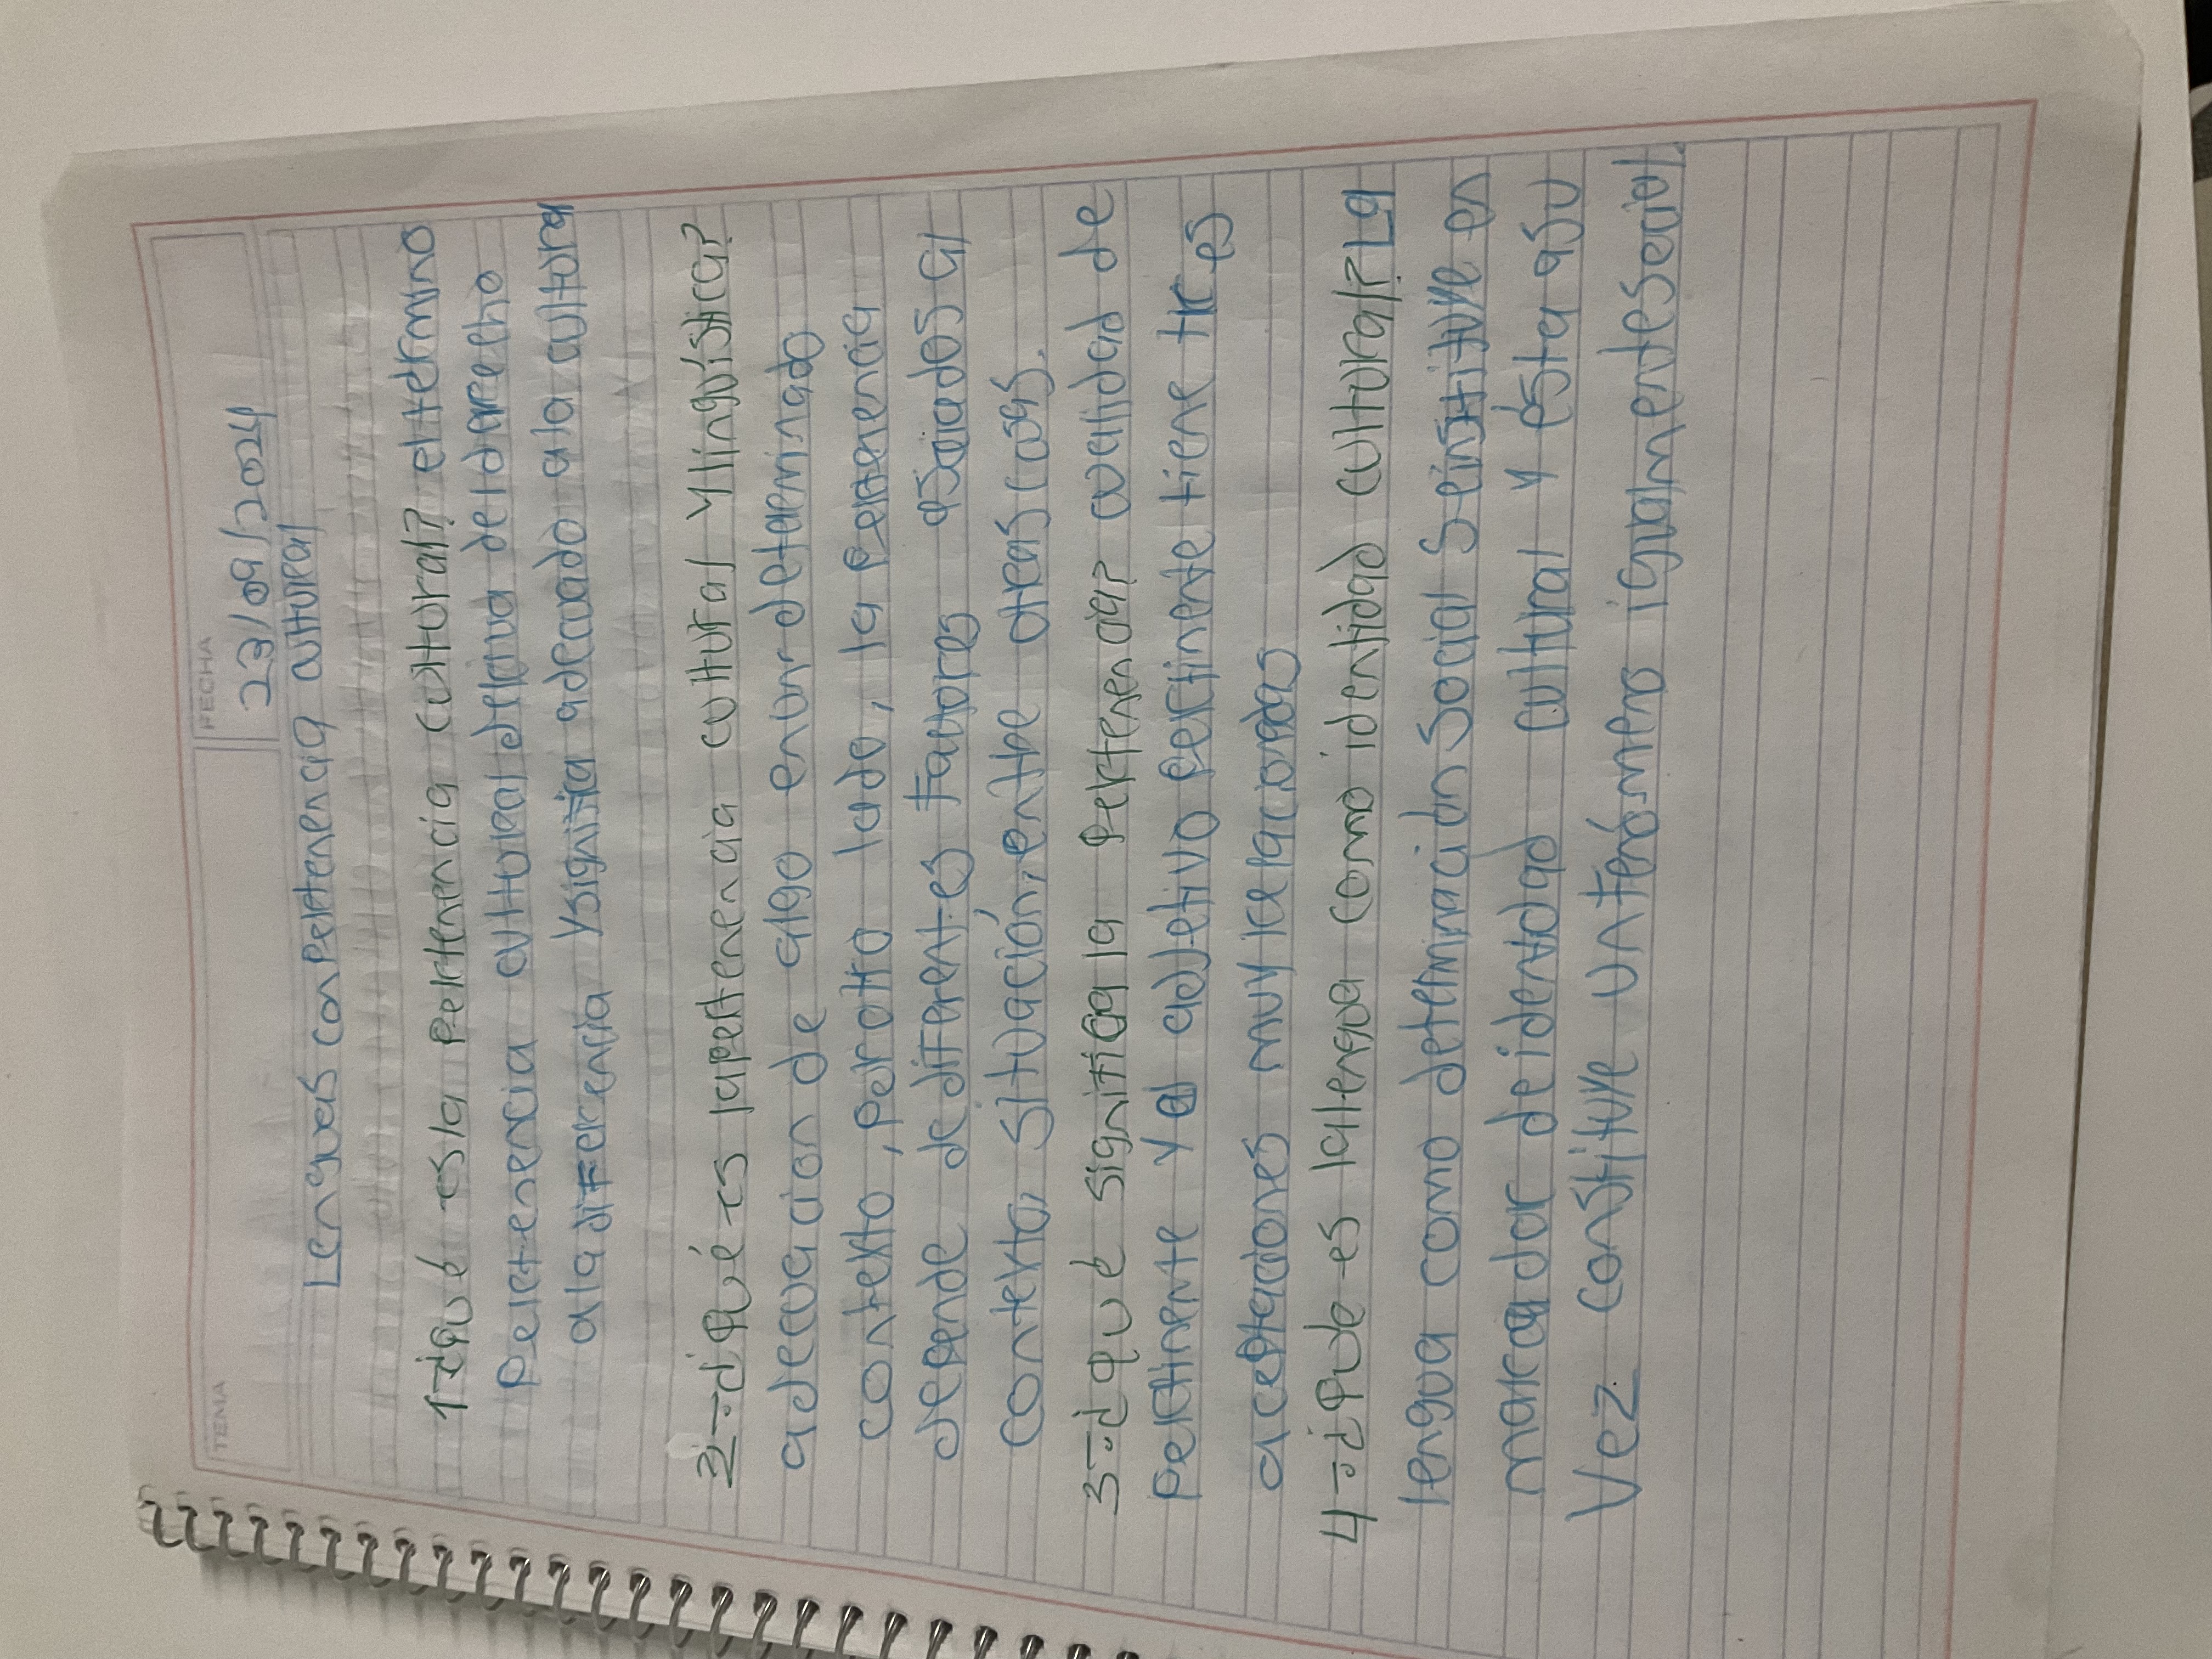 TEMA
FECHA
23/09/2024
Lenguas con pertenencia cultural
1-¿qué es la pertenencia cultural? el termino
pertenencia cultural deriva del derecho
a la diferencia y significa adecuado a la cultura
2-¿qué es la pertenencia cultural y lingüística?
adecuacion de algo en un determinado
contexto, por otro lado, la pertenencia
depende de diferentes factores asociados al
contexto, situación, entre otras cosas.
3-¿qué significa la pertenencia? cualidad de
pertinente y el adjetivo pertinente tiene tres
aceptaciones muy relacionadas
4-¿qué es la lengua como identidad cultural? La
lengua como determinación social se institure en
marcador de identidad cultural y ésta a su
vez constiture un fenómeno igualmente social.